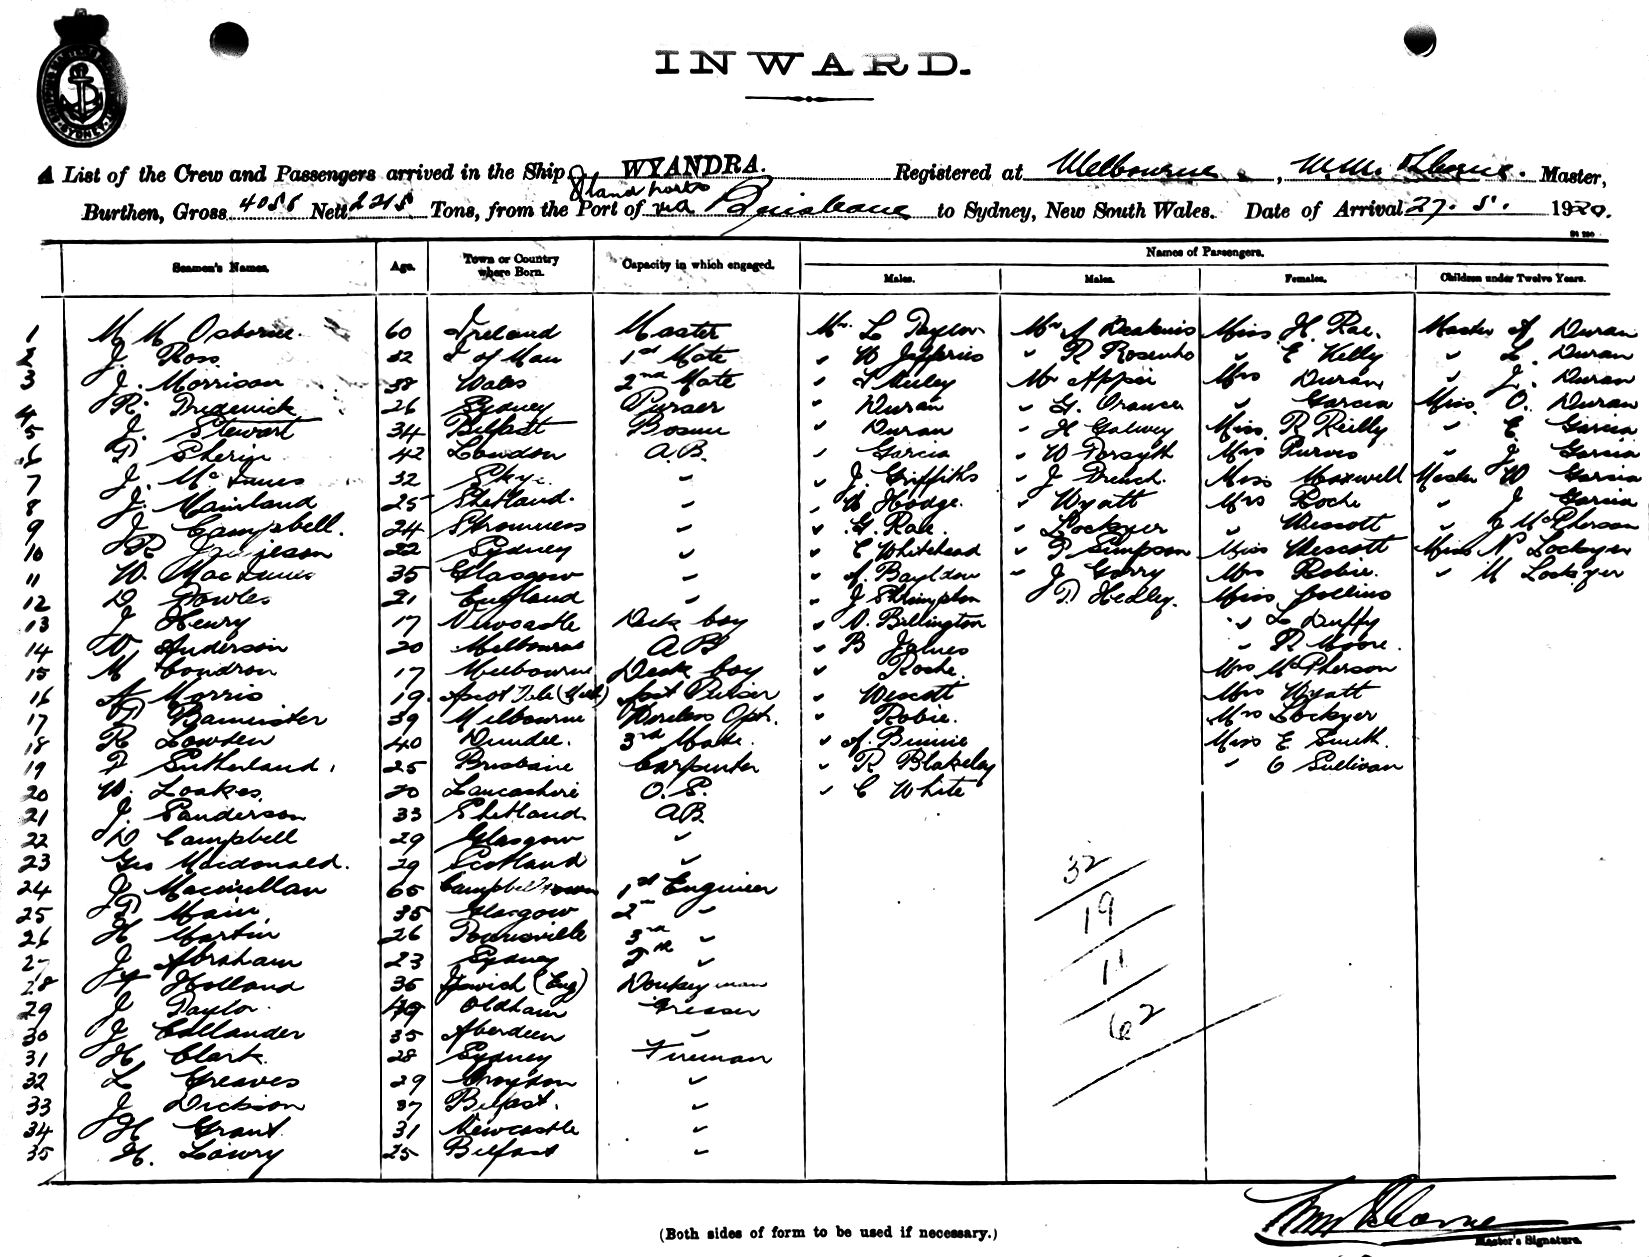 INWARD.
A List of the Crew and Passengers arrived in the Ship WYANDRA. Registered at Melbourne, M.M. Osborne. Master,
Island ports
Burthen, Gross 4058 Nett Tons, from the Port of via Brisbane to Sydney, New South Wales. Date of Arrival 27. 5. 1920.
Names of Passengers.
Seamen's Names. Age. Town or Country where Born. Capacity in which engaged. Males. Males. Females. Children under Twelve Years.
1 M M Osborne. 60 Ireland Master Mr. L Taylor Mr A Deakins Miss H. Rae. Master A Duran
2 J. Ross 32 I of Man 1st Mate " W Jefferies " R " E Kelly " L. Duran
3 J. Morrison 38 Wales 2nd Mate " Mr Apper Mrs Duran " J. Duran
4 R. Frederick 26 Sydney Purser " Duran " G. Orance " Garcia Miss. O. Duran
5 J. Stewart 34 Belfast Bosun " Duran " H Galwey Miss. R Reilly " E Garcia
6 42 London A.B. " Garcia " W Forsyth Mrs Purves " J Garcia
7 J. McInnes 32 Skye " " J. Griffiths " J French. Miss Maxwell Master W Garcia
8 J. Mainland 25 Shetland. " " W Hodge. " Wyatt Mrs Roche " J Garcia
9 J Campbell. 24 Stromness " " G. Rae. " Lockyer " Wescott " J McPherson
10 R Jamieson 22 Sydney " " E Whitehead " P Simpson Miss Wescott Miss N Lockyer
11 W. MacInnis 35 Glasgow " " A. Bayldon " J Gorry Mrs Robie. " M Lockyer
12 D Fowles 21 England " " J Shrimpton P. Hedley. Miss Jollins
13 J Henry 17 Newcastle Deck boy " A. Billington " L Duffy
14 W Anderson 20 Melbourne AB " B James " R Moore.
15 M Condron 17 Melbourne Deck boy " Roche. Mrs McPherson
16 A Morris 19. Asst Purser " Wescott Mrs Wyatt
17 Bannister 39 Melbourne Wireless Optr. " Robie. Mrs Lockyer
18 R Lowden 40 Dundee. 3rd Mate. " A. Binnie Miss E Smith.
19 Sutherland. 25 Brisbane Carpenter " R Blakeley " C Sullivan
20 W. Loakes. 20 Lancashire O.S. " C White
21 J. Sanderson 33 Shetland AB
22 D Campbell 29 Glasgow "
23 Geo Macdonald. 29 Scotland "
24 J Macmillan 65 Campbeltown 1st Engineer
25 Main. 35 Glasgow 2nd "
26 H Martin 26 Townsville 3rd "
27 J Abraham 23 Sydney "
28 Holland 36 Ipswich (Eng) Donkeyman
29 J Taylor. 49 Oldham Greaser
30 J Callander 35 Aberdeen "
31 H. Clark. 28 Sydney Fireman
32 L Greaves 29 Croydon "
33 J Dickson 37 Belfast. "
34 H Grant. 31 Newcastle "
35 H. Lowry 25 Belfast "
32
19
11
62
(Both sides of form to be used if necessary.)
Master's Signature.